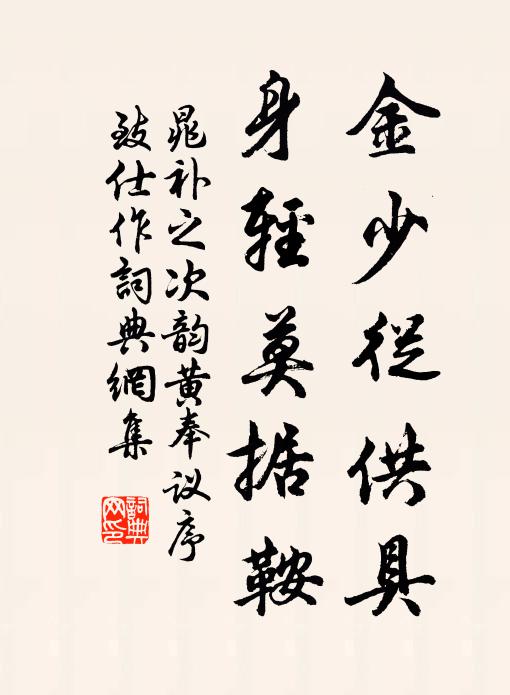 金少從供具
身輕莫据鞍
晁补之次韵黄奉议序
致仕作詞典網集
詞典網印